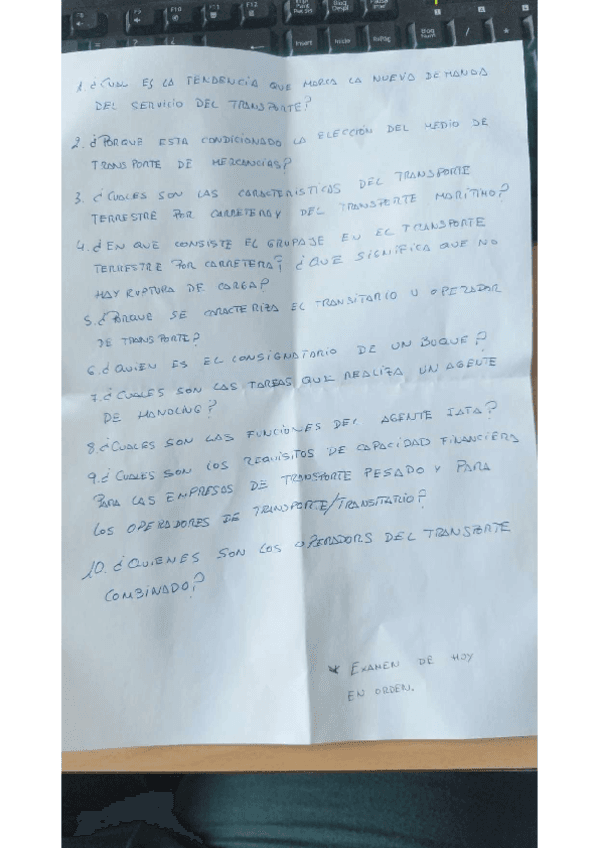 1. ¿CUAL ES LA TENDENCIA QUE MARCA LA NUEVA DEMANDA
DEL SERVICIO DEL TRANSPORTE?
2. ¿PORQUE ESTA CONDICIONADO LA ELECCIÓN DEL MEDIO DE
TRANSPORTE DE MERCANCIAS?
3. ¿CUALES SON LAS CARACTERISTICAS DEL TRANSPORTE
TERRESTRE POR CARRETERA Y DEL TRANSPORTE MARITIMO?
4. ¿EN QUE CONSISTE EL GRUPAJE EN EL TRANSPORTE
TERRESTRE POR CARRETERA? ¿QUE SIGNIFICA QUE NO
HAY RUPTURA DE CARGA?
5. ¿PORQUE SE CARACTERIZA EL TRANSITARIO U OPERADOR
DE TRANSPORTE?
6. ¿QUIEN ES EL CONSIGNATARIO DE UN BUQUE?
7. ¿CUALES SON LAS TAREAS QUE REALIZA UN AGENTE
DE HANDLING?
8. ¿CUALES SON LAS FUNCIONES DEL AGENTE IATA?
9. ¿CUALES SON LOS REQUISITOS DE CAPACIDAD FINANCIERA
PARA LAS EMPRESAS DE TRANSPORTE PESADO Y PARA
LOS OPERADORES DE TRANSPORTE/TRANSITARIO?
10. ¿QUIENES SON LOS OPERADORS DEL TRANSPORTE
COMBINADO?
* EXAMEN DE HOY
EN ORDEN.